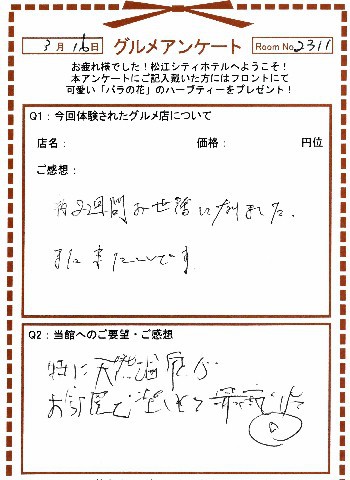 3月16日 グルメアンケート Room No.2311
お疲れ様でした！松江シティホテルへようこそ！
本アンケートにご記入戴いた方にはフロントにて
可愛い「バラの花」のハーブティーをプレゼント！
Q1：今回体験されたグルメ店について
店名： 価格： 円位
ご感想：
約2週間お世話になりました。
また来たいです
Q2：当館へのご要望・ご感想
特に天然温泉が
お部屋で